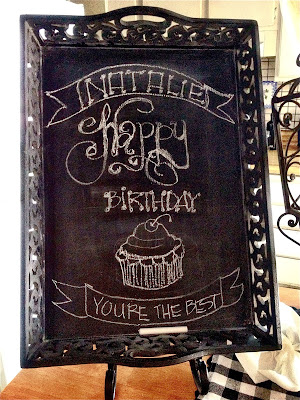 NATALIE
Happy
BIRTHDAY
YOU'RE THE BEST